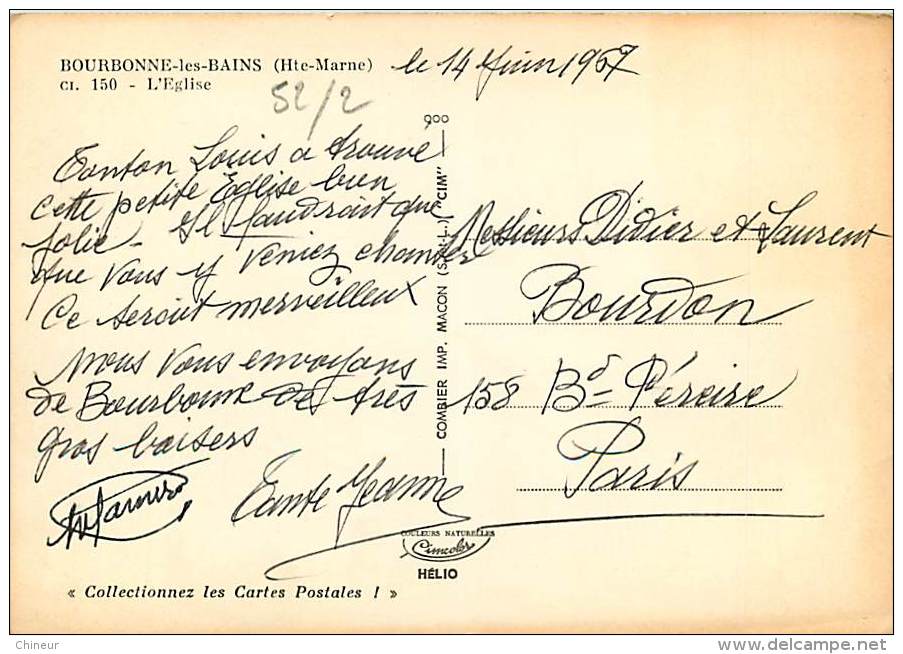 BOURBONNE-les-BAINS (Hte-Marne)
CI. 150 - L'Eglise
le 14 Juin 1967
52/2
900
Tonton Louis a trouvé
cette petite Église bien
jolie - Il faudrait que
que vous y veniez chanter
Ce serait merveilleux
Nous vous envoyons
de Bourbonne de très
gros baisers
Tante Jeanne
Messieurs Didier et Laurent
Bourdon
158 Bd Péreire
Paris
COMBIER IMP. MACON (S.-et-L.) "CIM"
COULEURS NATURELLES
Cimcolor
HÉLIO
« Collectionnez les Cartes Postales ! »
Chineur
delcampe.net